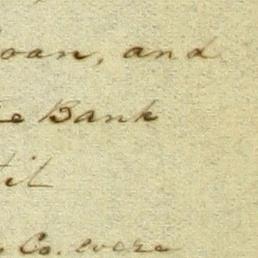 loan, and
Bank
til
Co. were